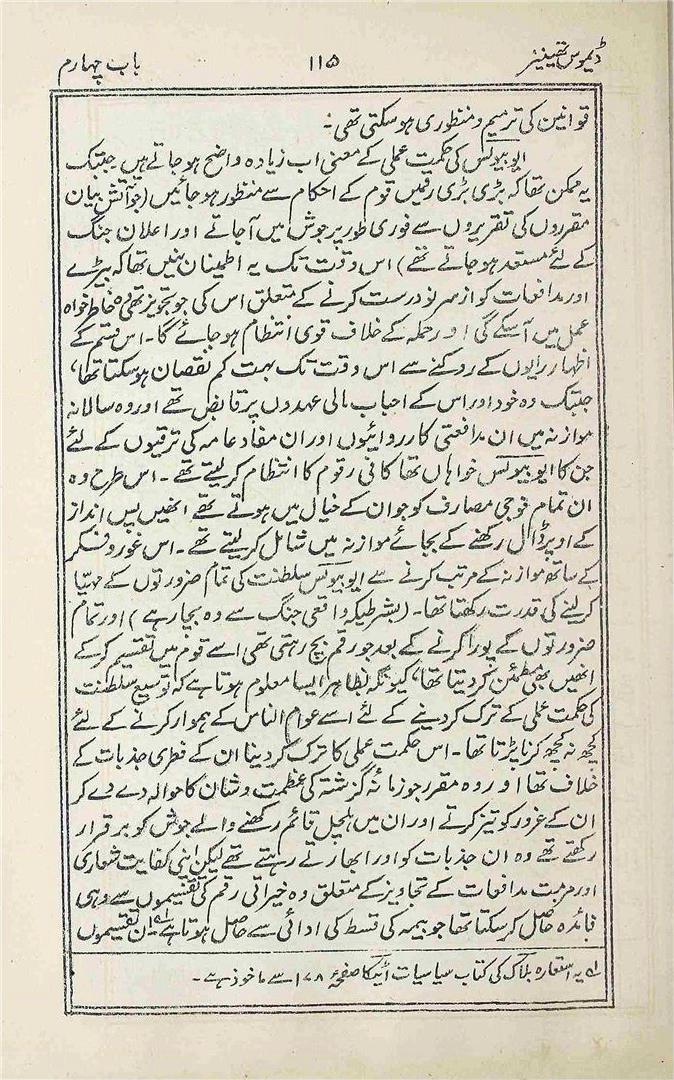 ڈیموس تھینیز ۱۱۵ باب چہارم
قوانین کی ترمیم و منظوری ہو سکتی تھی۔
ایوبیولس کی حکمت عملی کے معنی اب زیادہ واضح ہو جاتے ہیں جبتک
یہ ممکن تھا کہ بڑی بڑی رقمیں قوم کے احکام سے منظور ہو جائیں (جو آتش بیان
مقرروں کی تقریروں سے فوری طور پر جوش میں آ جاتے اور اعلان جنگ
کے لئے مستعد ہو جاتے تھے) اس وقت تک یہ اطمینان نہیں تھا کہ بیڑے
اور مدافعات کو از سر نو درست کرنے کے متعلق اس کی جو تجویز تھی وہ خاطر خواہ
عمل میں آ سکے گی اور حملہ کے خلاف قوی انتظام ہو جائے گا۔ اس قسم کے
اظہار رایوں کے روکنے سے اس وقت تک بہت کم نقصان ہو سکتا تھا،
جبتک وہ خود اور اس کے احباب مالی عہدوں پر قابض تھے اور وہ سالانہ
موازنہ میں ان مدافعتی کارروائیوں اور ان مفاد عامہ کی ترقیوں کے لئے
جن کا ایوبیولس خواہاں تھا کافی رقوم کا انتظام کر لیتے تھے۔ اس طرح وہ
ان تمام فوجی مصارف کو جو ان کے خیال میں ہوتے تھے انھیں پس انداز
کے اوپر ڈال رکھنے کے بجائے موازنہ میں شامل کر لیتے تھے۔ اس غور و فکر
کے ساتھ موازنہ کے مرتب کرنے سے ایوبیولس سلطنت کی تمام ضرورتوں کے مہیا
کر لینے کی قدرت رکھتا تھا۔ (بشرطیکہ واقعی جنگ سے وہ بچا رہے) اور تمام
ضرورتوں کے پورا کرنے کے بعد جو رقم بچ رہتی تھی اسے قوم میں تقسیم کر کے
انھیں بھی مطمئن کر دیتا تھا، کیونکہ بظاہر ایسا معلوم ہوتا ہے کہ توسیع سلطنت
کی حکمت عملی کے ترک کر دینے کے لئے اسے عوام الناس کے ہموار کرنے کے لئے
کچھ نہ کچھ کرنا پڑتا تھا۔ اس حکمت عملی کا ترک کر دینا ان کے فطری جذبات کے
خلاف تھا اور وہ مقرر جو زمانہ گزشتہ کی عظمت و شان کا حوالہ دے دے کر
ان کے غرور کو تیز کرتے اور ان میں ہلچل قائم رکھنے والے جوش کو برقرار
رکھتے تھے وہ ان جذبات کو اور ابھارتے رہتے تھے لیکن اپنی کفایت شعاری
اور مرمت مدافعات کے تجاویز کے متعلق وہ خیراتی رقم کی تقسیموں سے وہی
فائدہ حاصل کر سکتا تھا جو بیمہ کی قسط کی ادائی سے حاصل ہوتا ہے ۱؎ ان تقسیموں
۱؎ یہ استعارہ بلاک کی کتاب سیاسیات صفحہ ۱۷۸ سے ماخوذ ہے۔